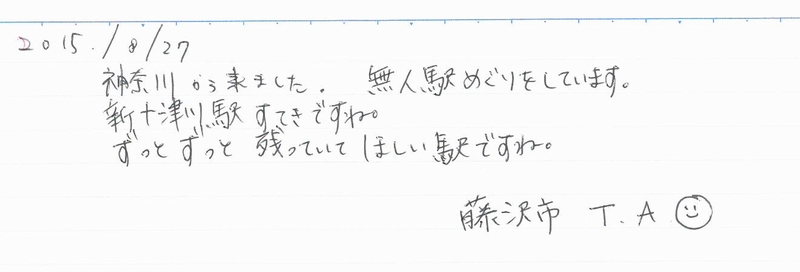 2015./8/27
神奈川から来ました。 無人駅めぐりをしています。
新十津川駅すてきですね。
ずっとずっと残っていてほしい駅ですね。
藤沢市 T.A